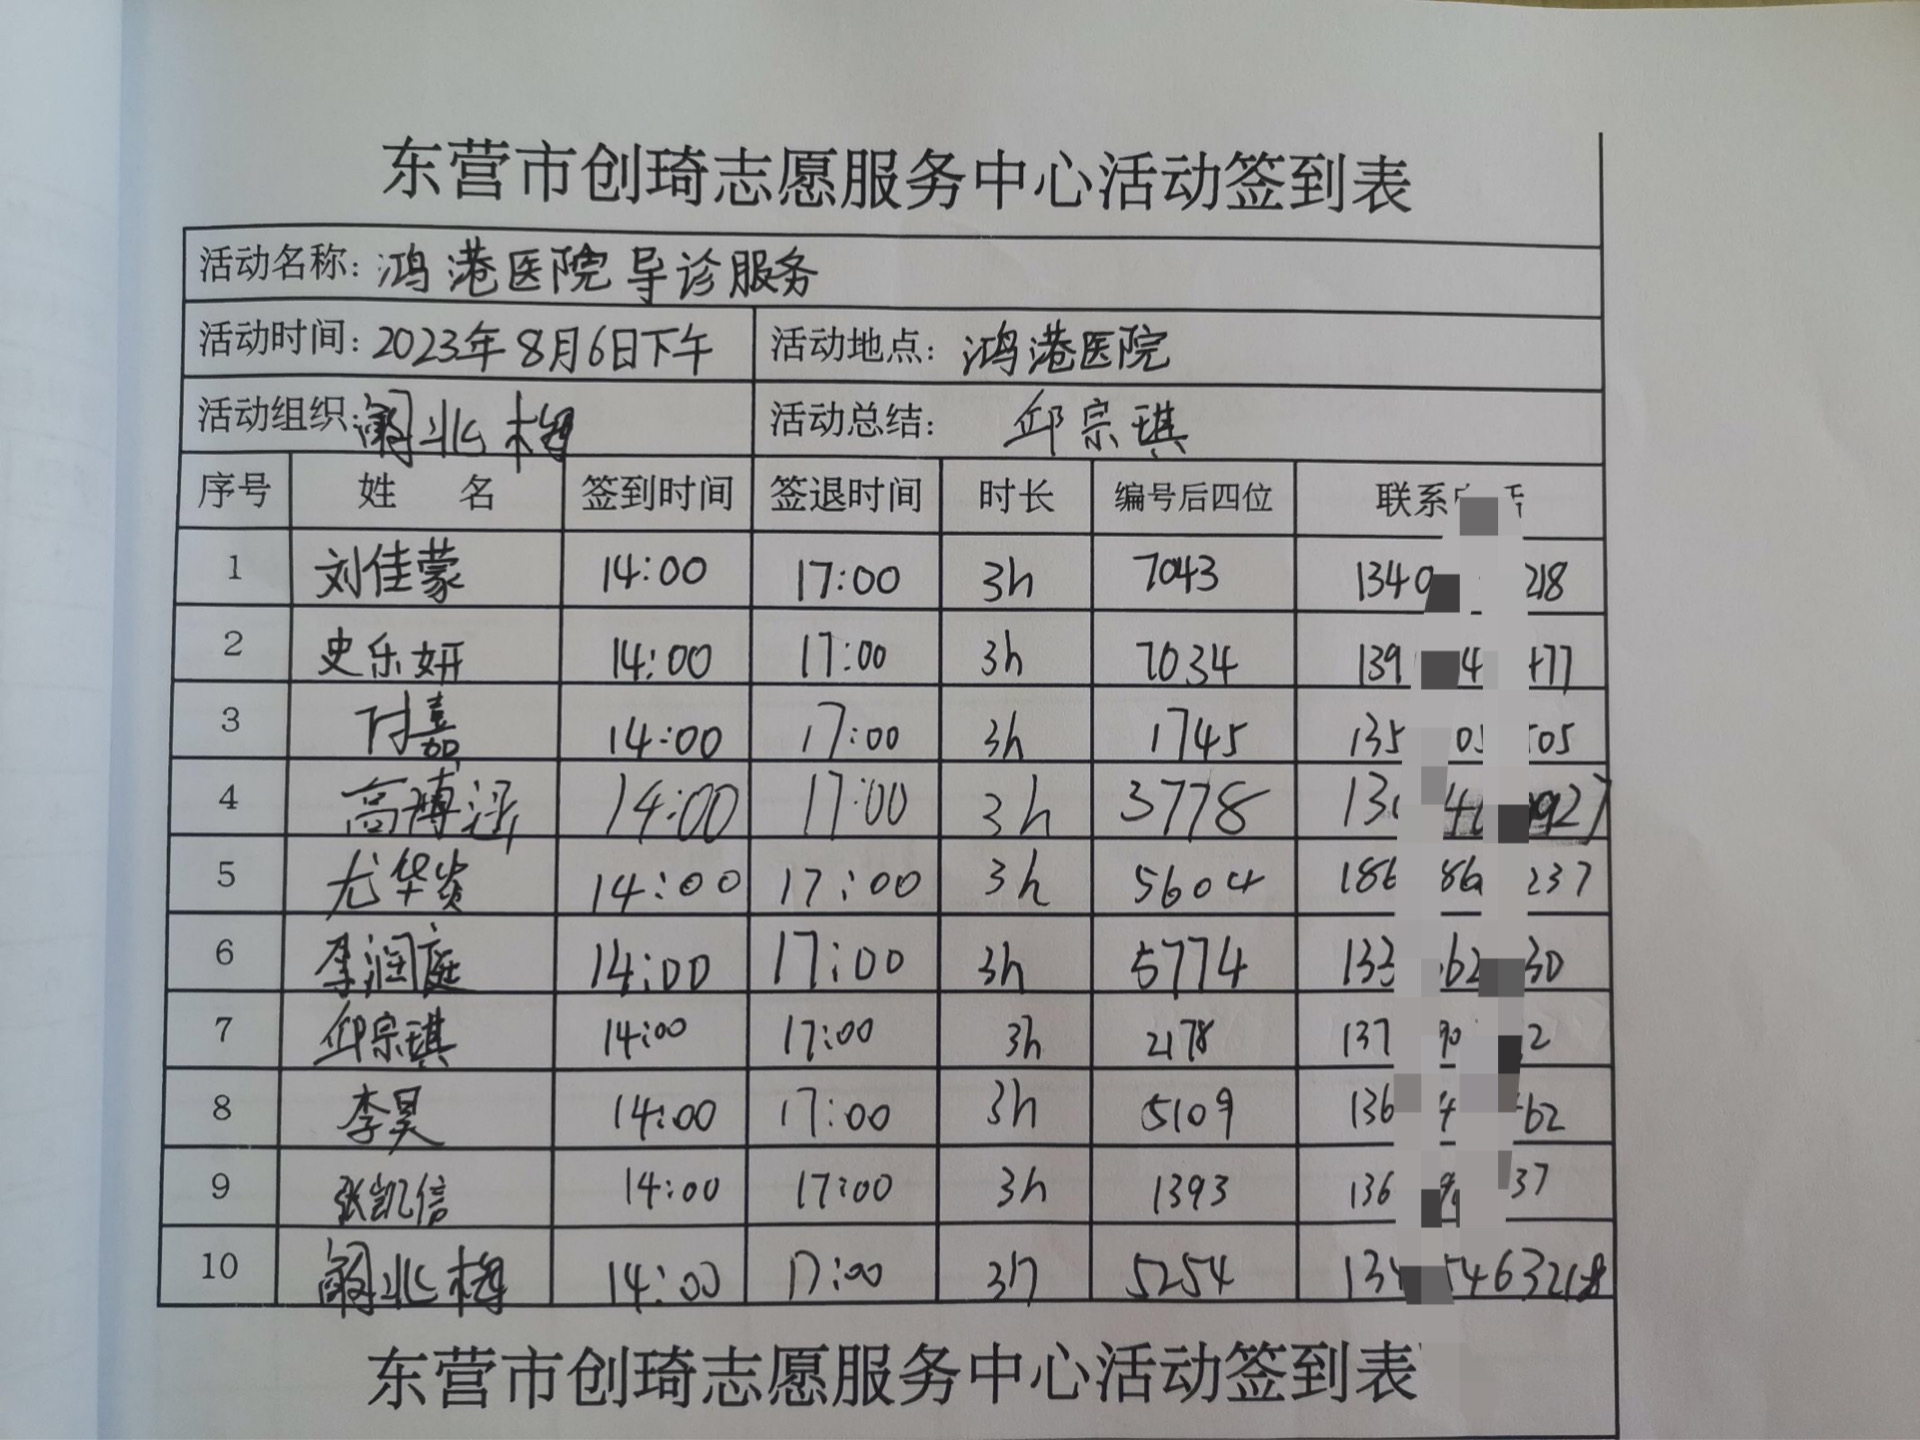 东营市创琦志愿服务中心活动签到表
活动名称: 鸿港医院导诊服务
活动时间: 2023年8月6日下午 活动地点: 鸿港医院
活动组织: 北梅 活动总结: 邱宗琪
序号 姓 名 签到时间 签退时间 时长 编号后四位 联系
1 刘佳蒙 14:00 17:00 3h 7043 1340 218
2 史乐妍 14:00 17:00 3h 7034 139 4 77
3 付嘉 14:00 17:00 3h 1745 135 05 505
4 高博涵 14:00 17:00 3h 3778 13 4 927
5 尤华贵 14:00 17:00 3h 5604 186 86 237
6 李润庭 14:00 17:00 3h 5774 133 62 30
7 邱宗琪 14:00 17:00 3h 2178 137 90 2
8 李昊 14:00 17:00 3h 5109 136 4 62
9 张凯信 14:00 17:00 3h 1393 136 9 37
10 北梅 14:00 17:00 3h 5254 134 5463218
东营市创琦志愿服务中心活动签到表